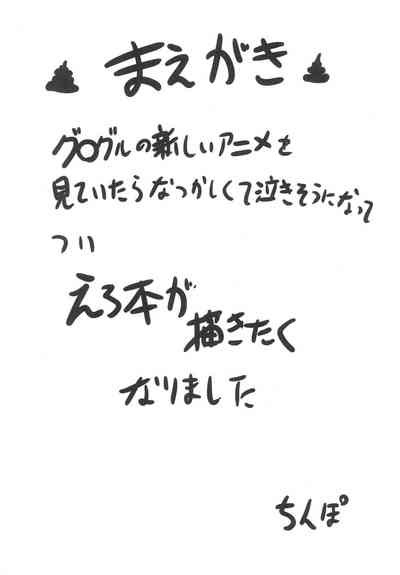 まえがき
グ○グルの新しいアニメを
見ていたらなつかしくて泣きそうになって
つい
えろ本が
描きたく
なりました
ちんぽ